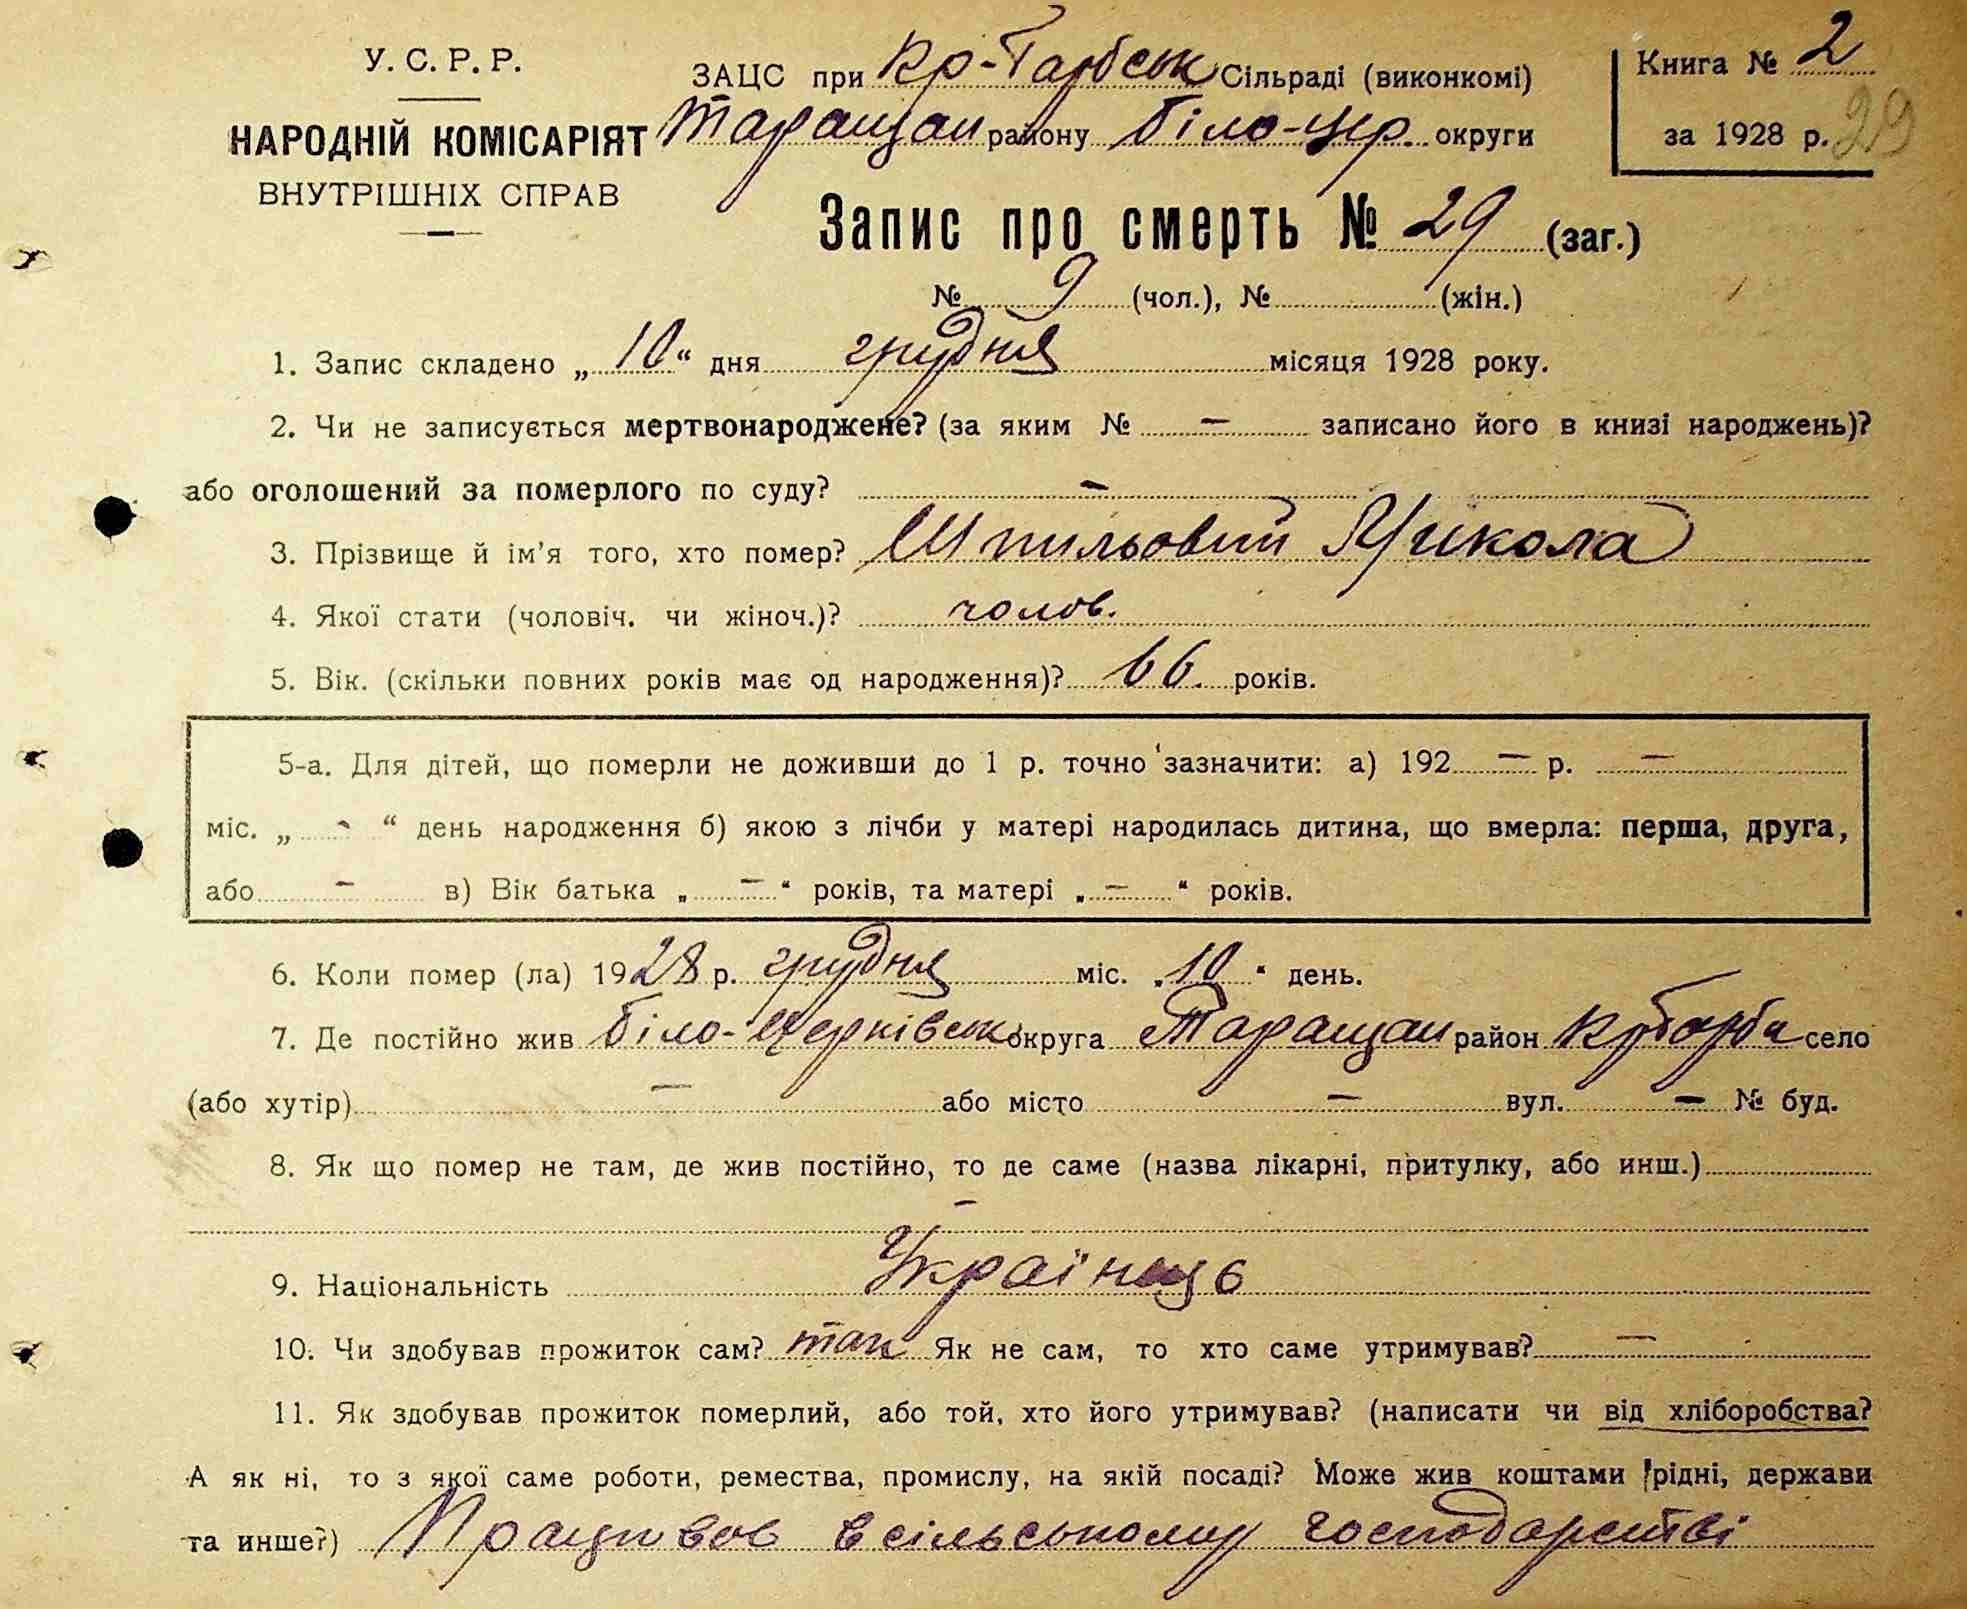 У. С. Р. Р.
НАРОДНІЙ КОМІСАРІЯТ
ВНУТРІШНІХ СПРАВ
ЗАЦС при Кр-Гарбськ Сільраді (виконкомі)
Таращан району Біло-Цер. округи
Книга № 2
за 1928 р. 29
Запис про смерть № 29 (заг.)
№ 9 (чол.), № (жін.)
1. Запис складено „ 10 “ дня грудня місяця 1928 року.
2. Чи не записується мертвонароджене? (за яким № — записано його в книзі народжень)?
або оголошений за померлого по суду? —
3. Прізвище й ім’я того, хто помер? Шпильовий Микола
4. Якої стати (чоловіч. чи жіноч.)? чолов.
5. Вік. (скільки повних років має од народження)? 66 років.
5-а. Для дітей, що померли не доживши до 1 р. точно зазначити: а) 192 — р. —
міс. „ - “ день народження б) якою з лічби у матері народилась дитина, що вмерла: перша, друга,
або — в) Вік батька „ — “ років, та матері „ — “ років.
6. Коли помер (ла) 1928 р. грудня міс. „ 10 “ день.
7. Де постійно жив Біло-Церківськ округа Таращан район село
(або хутір) — або місто — вул. — № буд.
8. Як що помер не там, де жив постійно, то де саме (назва лікарні, притулку, або инш.)
—
9. Національність Українець
10. Чи здобував прожиток сам? так Як не сам, то хто саме утримував? —
11. Як здобував прожиток померлий, або той, хто його утримував? (написати чи від хліборобства?
А як ні, то з якої саме роботи, ремества, промислу, на якій посаді? Може жив коштами рідні, держави
та инше?) Працював в сільському господарстві